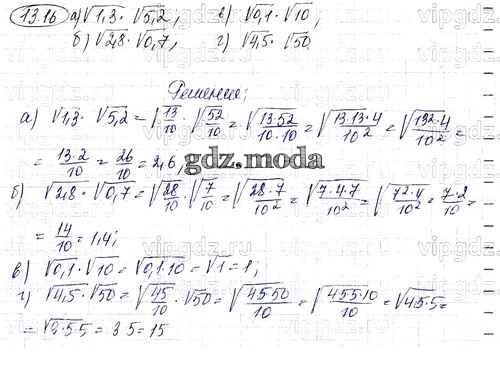 13.16 а) √1,3 · √5,2; в) √0,1 · √10;
б) √2,8 · √0,7; г) √4,5 · √50.
Решение:
а) √1,3 · √5,2 = √13/10 · √52/10 = √13·52/10·10 = √13·13·4/10² = √13²·4/10² =
= 13·2/10 = 26/10 = 2,6;
gdz.moda
б) √2,8 · √0,7 = √28/10 · √7/10 = √28·7/10² = √7·4·7/10² = √7²·4/10² = 7·2/10 =
= 14/10 = 1,4;
в) √0,1 · √10 = √0,1·10 = √1 = 1;
г) √4,5 · √50 = √45/10 · √50 = √45·50/10 = √45·5·10/10 = √45·5 =
= √9·5·5 = 3·5 = 15
vipgdz.ru